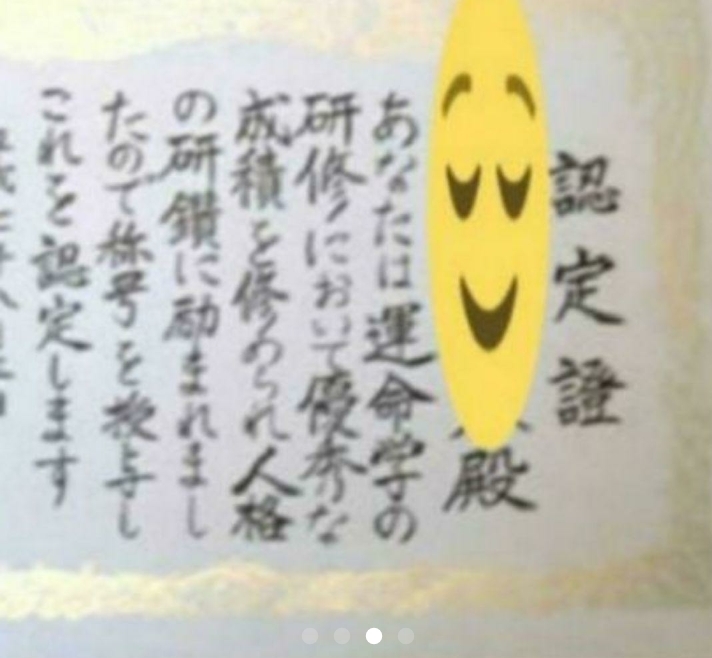 認定證
殿
あなたは運命学の
研修において優秀な
成績を修められ人格
の研鑽に励まれまし
たので称号を授与し
これを認定します